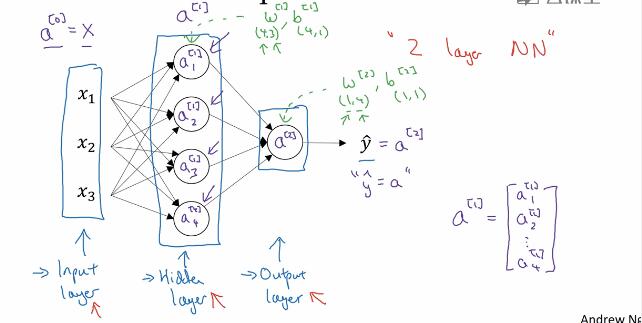 a^[0] = X
a^[1]
w^[1], b^[1]
(4,3) (4,1)
"2 layer NN"
x₁
x₂
x₃
a₁^[1]
a₂^[1]
a₃^[1]
a₄^[1]
a^[2]
w^[2], b^[2]
(1,4) (1,1)
ŷ = a^[2]
"ŷ = a"
a^[1] = [a₁^[1]
a₂^[1]
⋮
a₄^[1]]
→ Input layer
→ Hidden layer
→ Output layer
Andrew N